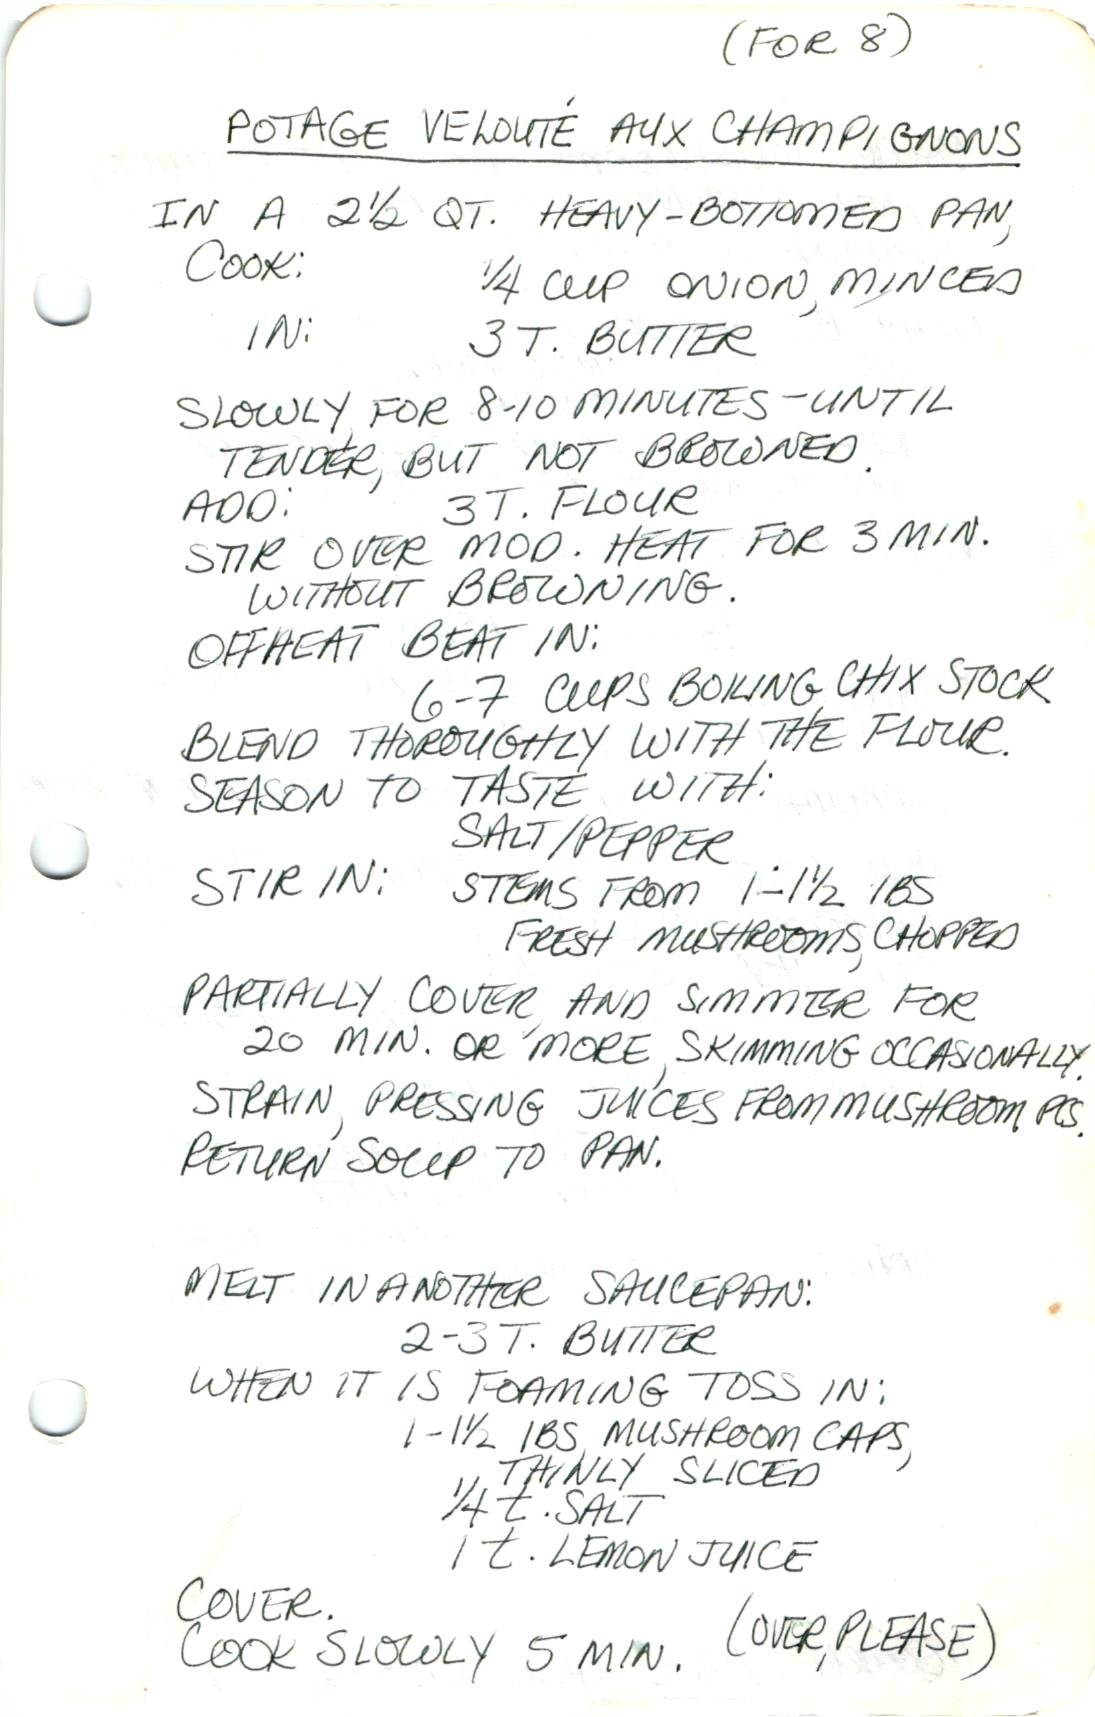 (FOR 8)
POTAGE VELOUTÉ AUX CHAMPIGNONS
IN A 2½ QT. HEAVY-BOTTOMED PAN,
COOK: ¼ CUP ONION, MINCED
IN: 3 T. BUTTER
SLOWLY, FOR 8-10 MINUTES - UNTIL
TENDER, BUT NOT BROWNED.
ADD: 3 T. FLOUR
STIR OVER MOD. HEAT FOR 3 MIN.
WITHOUT BROWNING.
OFFHEAT BEAT IN:
6-7 CUPS BOILING CHIX STOCK
BLEND THOROUGHLY WITH THE FLOUR.
SEASON TO TASTE WITH:
SALT/PEPPER
STIR IN: STEMS FROM 1-1½ lBS
FRESH MUSHROOMS, CHOPPED
PARTIALLY COVER, AND SIMMER FOR
20 MIN. OR MORE, SKIMMING OCCASIONALLY.
STRAIN, PRESSING JUICES FROM MUSHROOM PCS.
RETURN SOUP TO PAN.
MELT IN ANOTHER SAUCEPAN:
2-3 T. BUTTER
WHEN IT IS FOAMING TOSS IN:
1-1½ lBS MUSHROOM CAPS,
THINLY SLICED
¼ t. SALT
1 t. LEMON JUICE
COVER.
COOK SLOWLY 5 MIN. (OVER, PLEASE)